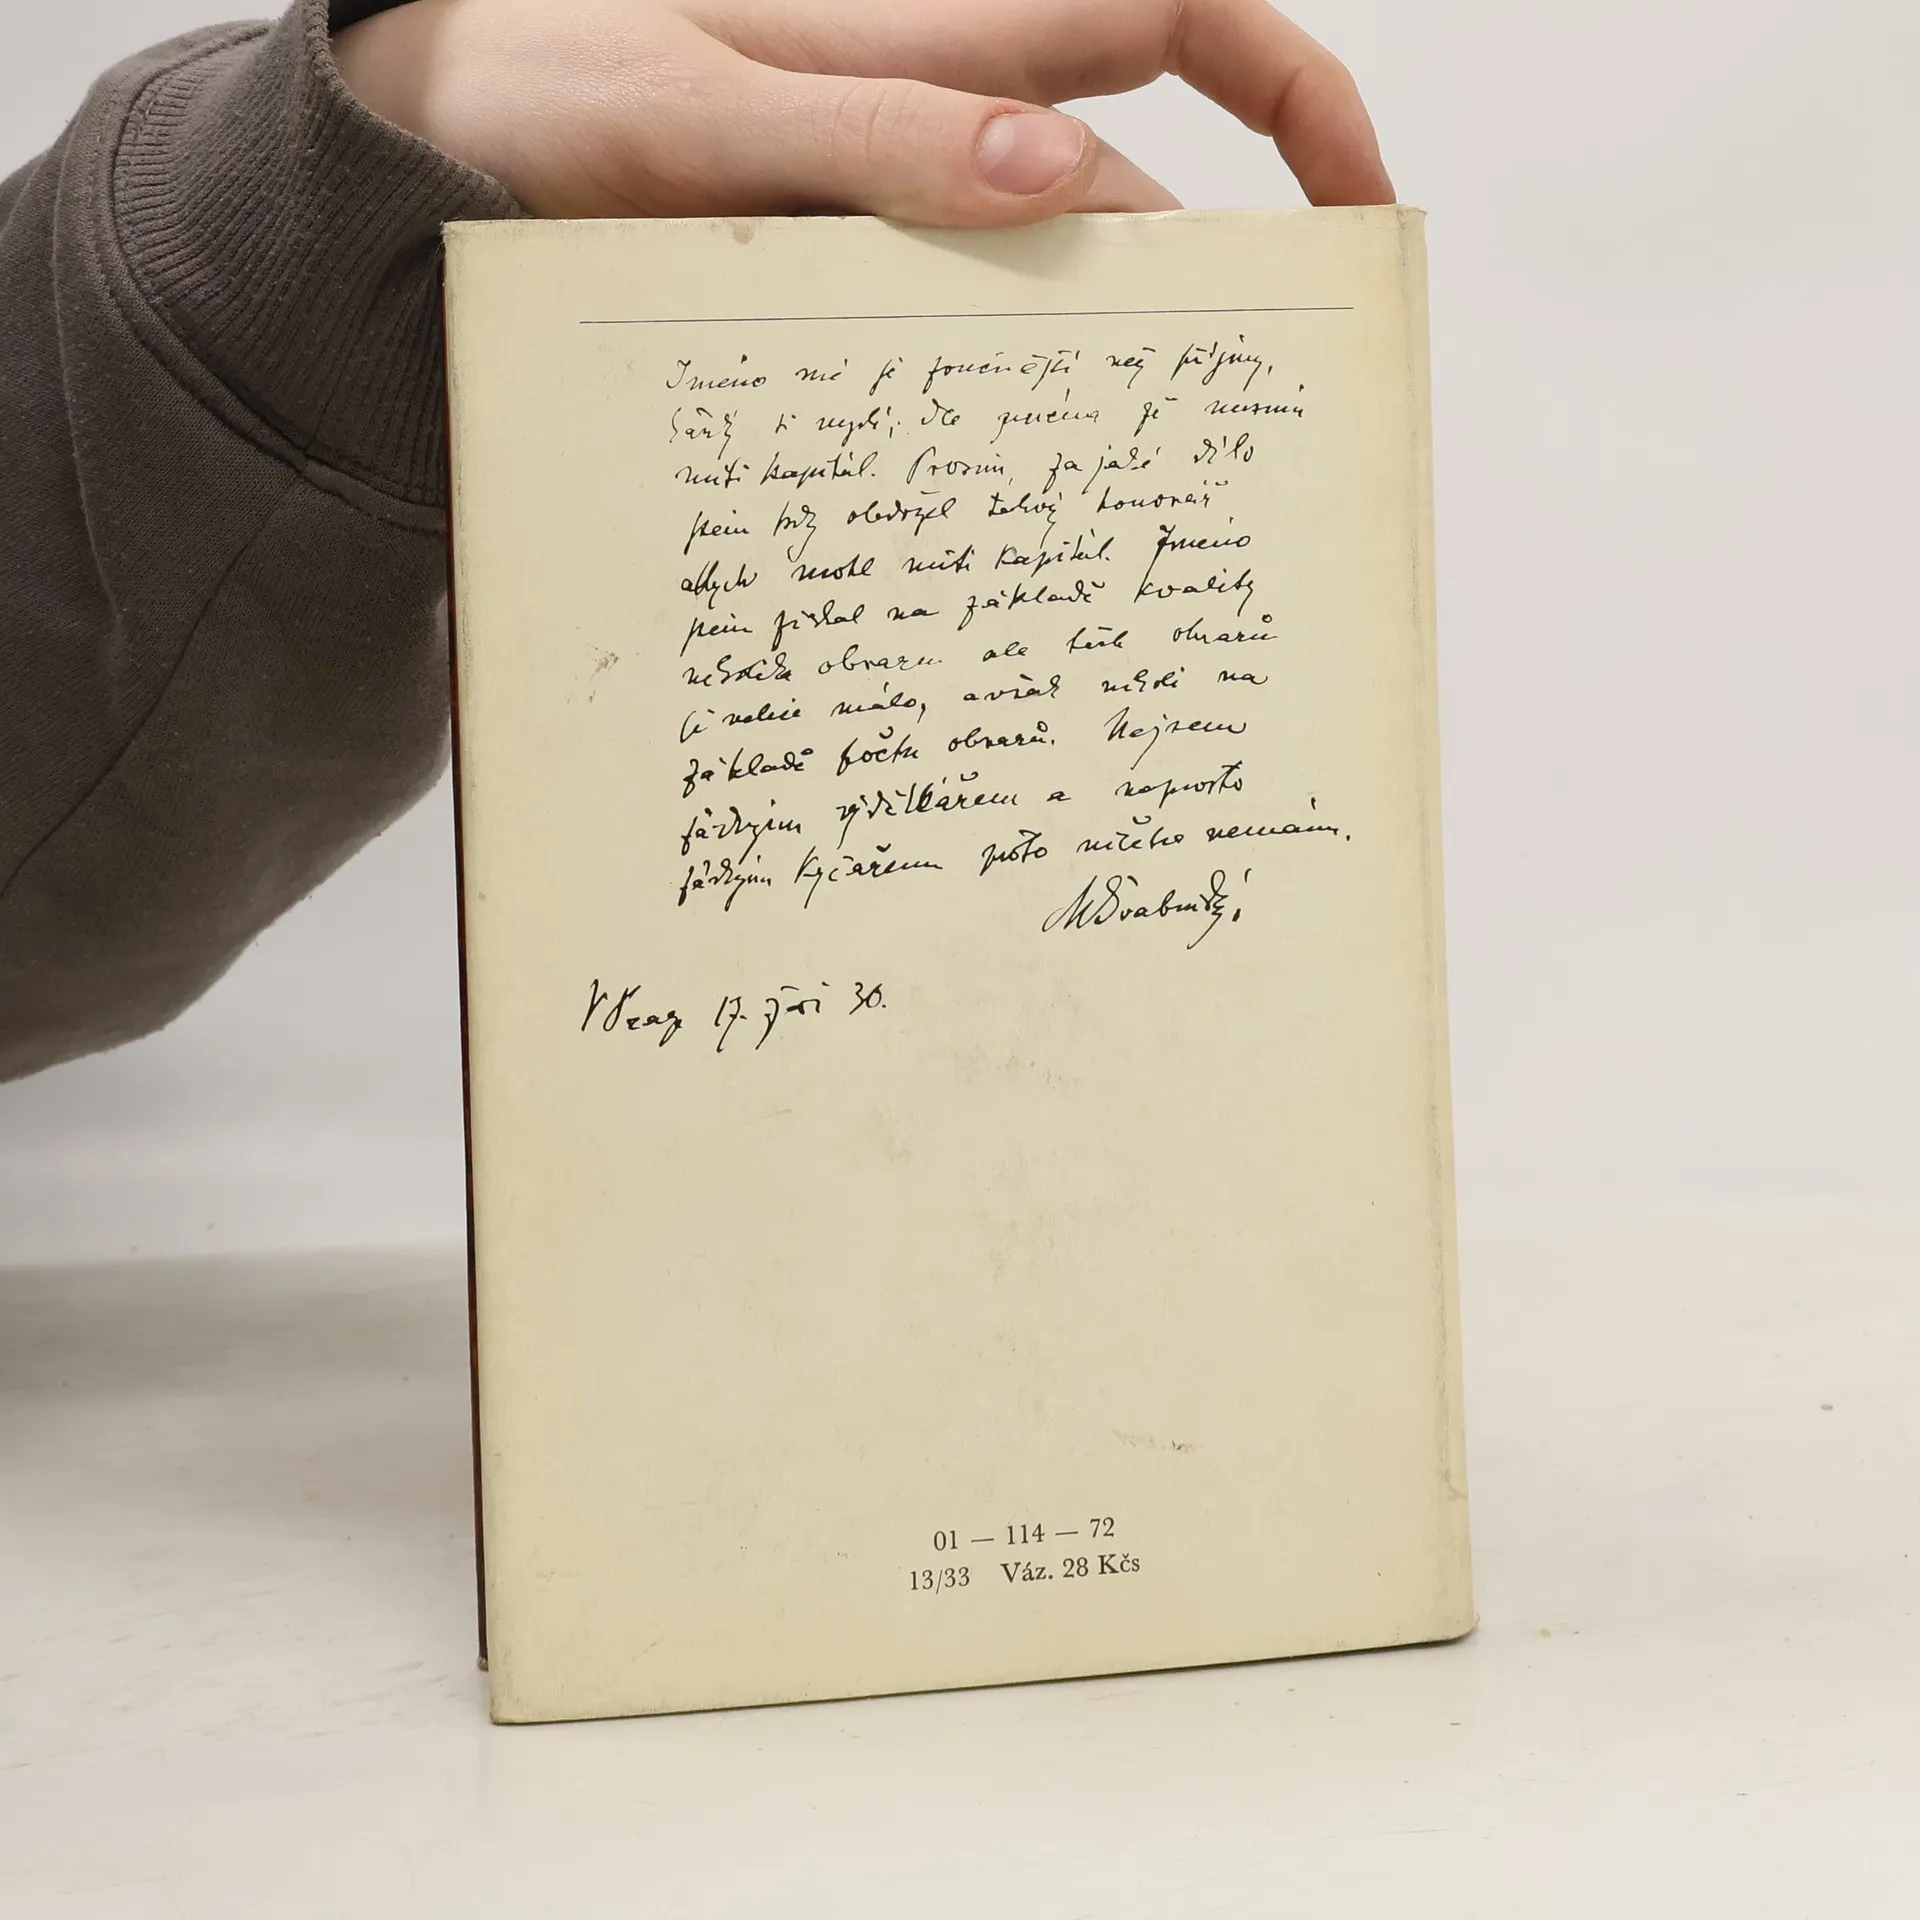 Jméno mé je zvučnější než příjmy,
každý ti mysli, dle jména že musím
míti kapitál. Prosím, za jaké dílo
jsem kdy obdržel takový honorář
abych mohl míti kapitál. Jméno
jsem získal na základě kvality
několika obrazů ale těch obrazů
je velice málo, avšak nikoli na
základě počtu obrazů. Nejsem
žádným výdělkářem a naprosto
žádným kyčařem proto ničeho nemám.
MŠvabinský
V Praze 17. září 30.
01 — 114 — 72
13/33 Váz. 28 Kčs